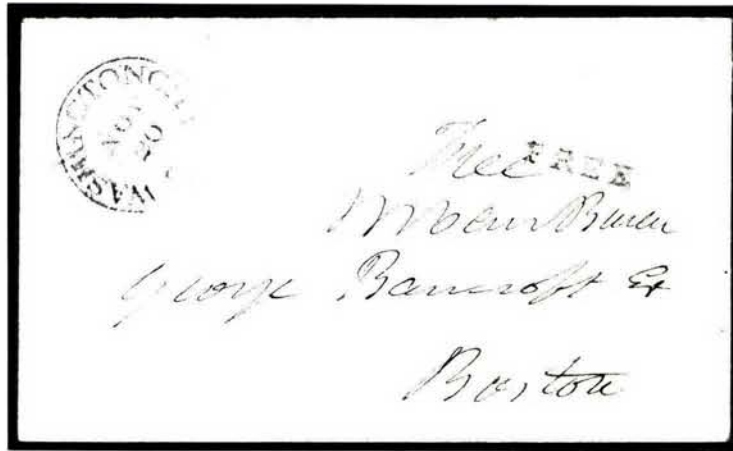 WASHINGTON CI
NOV
20
Free FREE
MVan Buren
George Bancroft Es
Boston